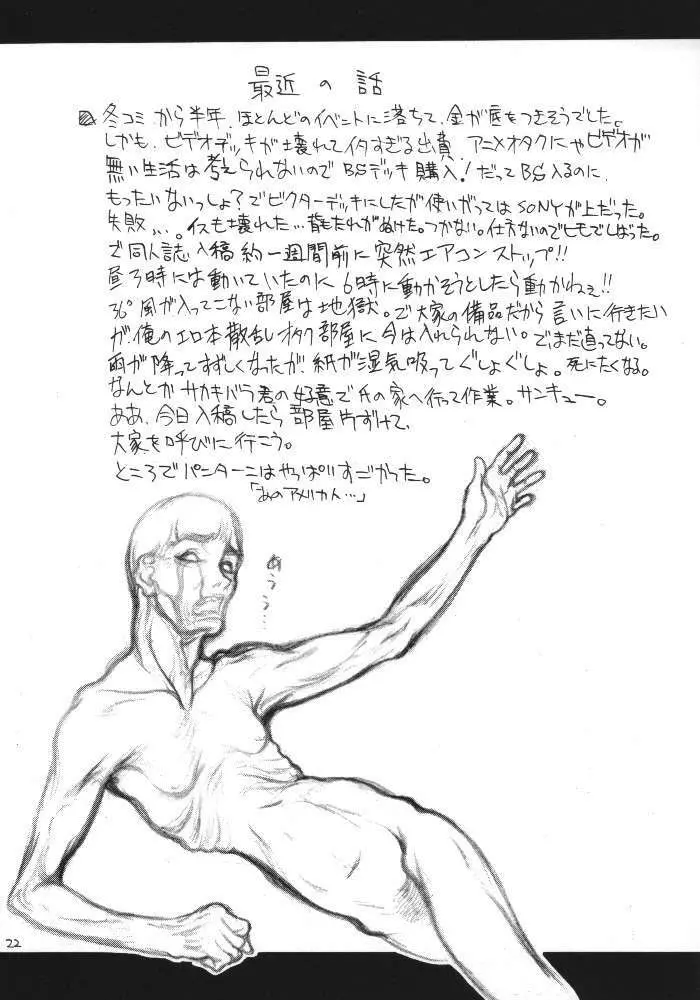 最近の話
冬コミから半年、ほとんどのイベントに落ちて、金が底をつきそうでした。
しかも、ビデオデッキが壊れてイタすぎる出費、アニメオタクにゃビデオが
無い生活は考えられないのでBSデッキ購入!だってBS入るのに、
もったいないっしょ?でビクターデッキにしたが使いがってはSONYが上だった。
失敗、、、。イスも壊れた…背もたれがぬけた。つかない。仕方ないのでヒモでしばった。
で同人誌入稿約一週間前に突然エアコンストップ!!
昼3時には動いていたのに6時に動かそうとしたら動かねぇ!!
36°風が入ってこない部屋は地獄。で大家の備品だから言いに行きたい
が、俺のエロ本散乱オタク部屋に今は入れられない。でまだ直ってない。
雨が降ってすずしくなったが、紙が湿気吸ってぐしょぐしょ。死にたくなる。
なんとかサカキバラ君の好意で氏の家へ行って作業。サンキュー。
ああ、今日入稿したら部屋片ずけて、
大家を呼びに行こう。
ところでパンターニはやっぱりすごかった。
「あのアメリカ人…」
あうう…
22